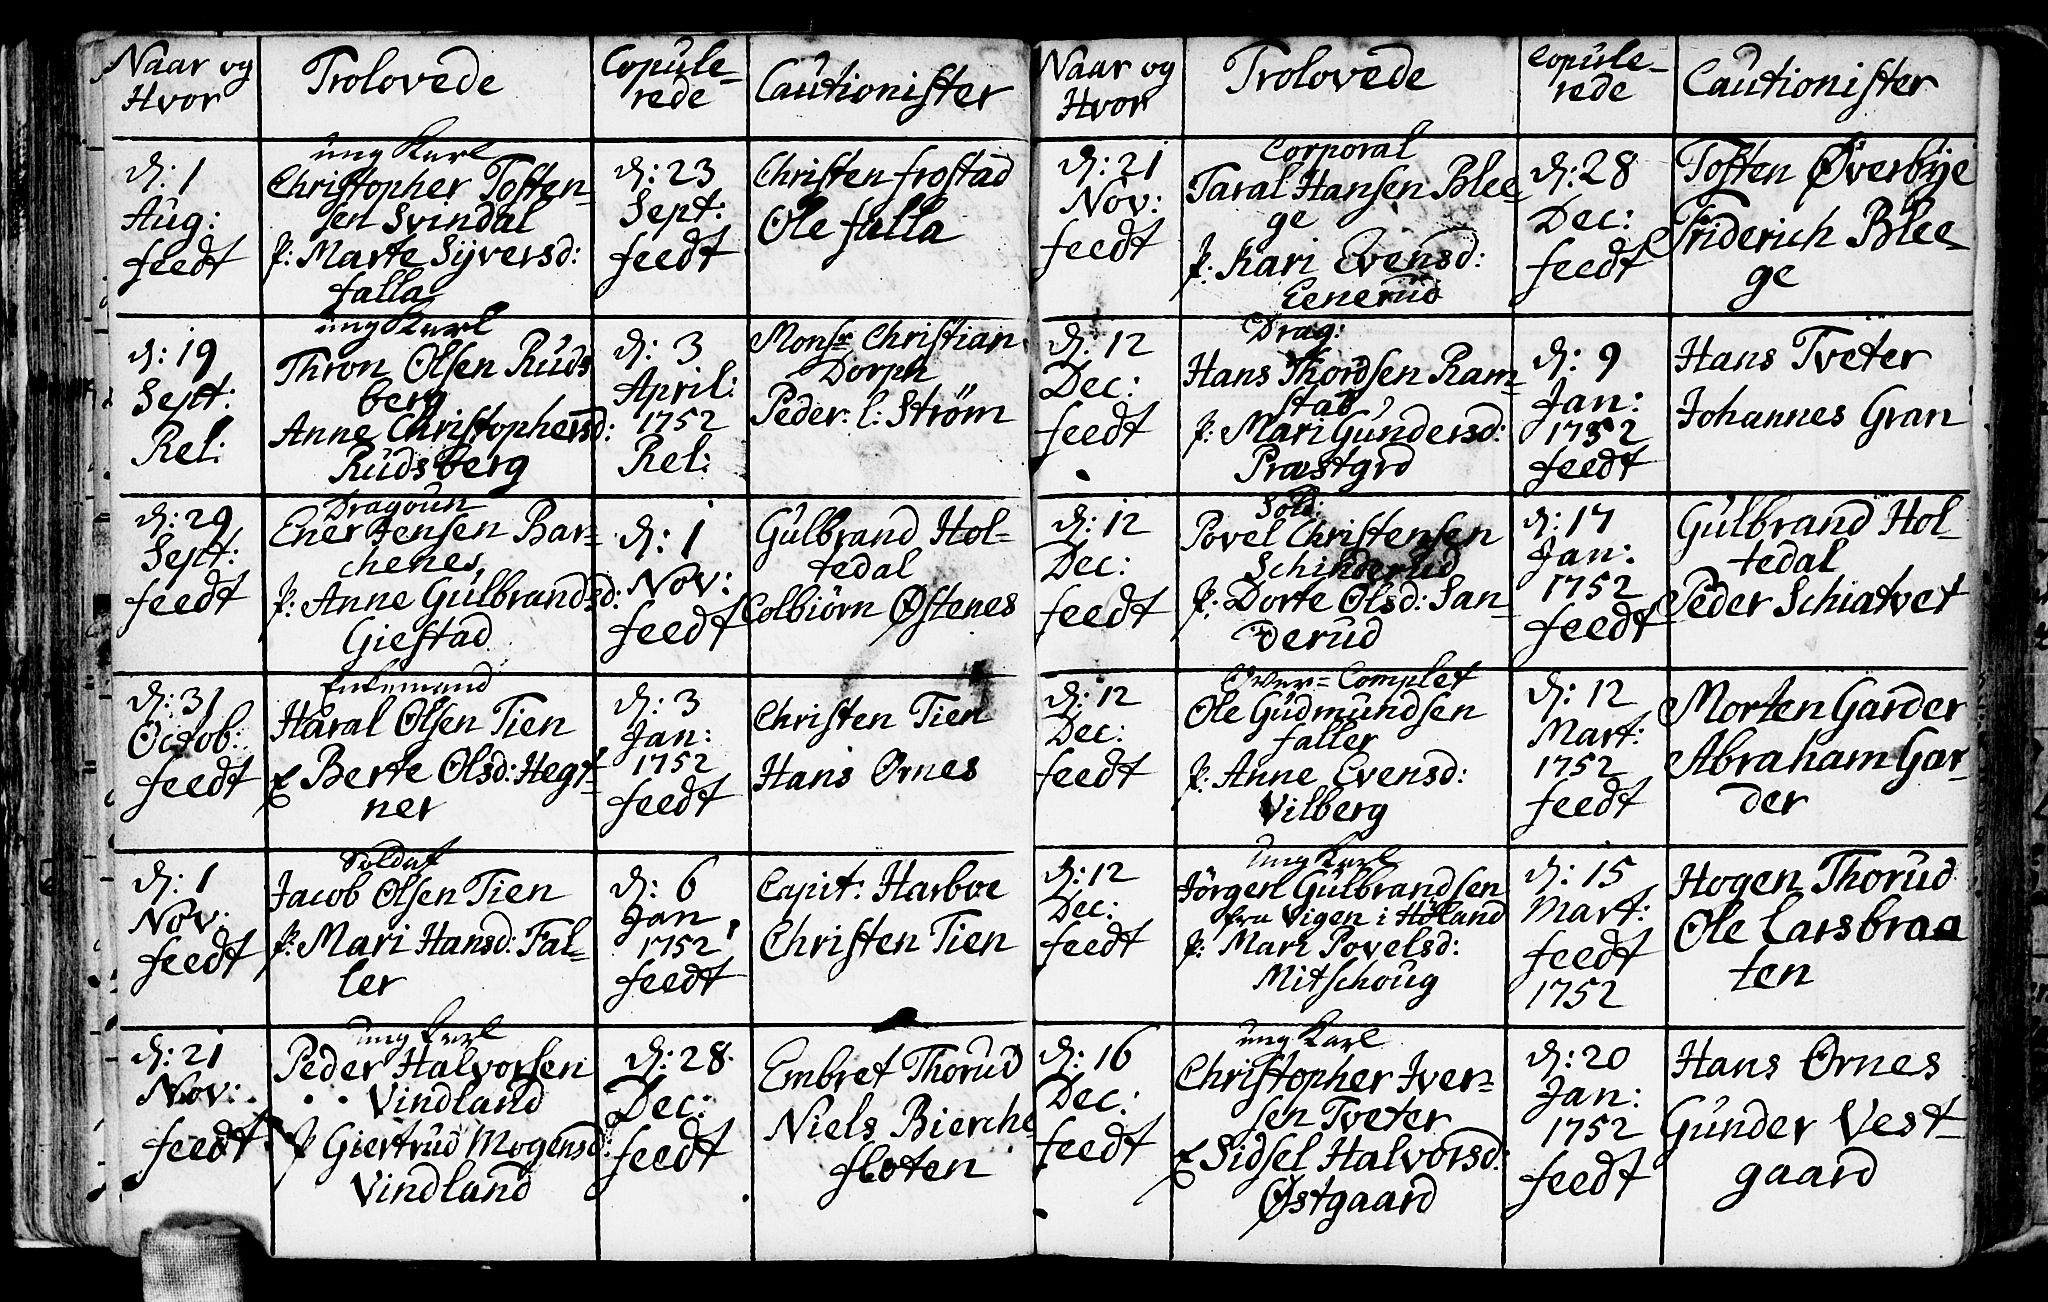 Naar og
Hvor
Trolovede
Copule-
rede
Cautionister
d: 1
Aug:
feedt
ung Karl
Christopher Tosten-
sen Svindal
P: Marte Sÿversd:
falla
d: 23
Sept:
feedt
Christen frostad
Ole falla
d: 19
Sept:
Rel:
ung Karl
Thron Olsen Ruds
berg
Anne Christophersd:
Rudsberg
d: 3
April:
1752
Rel:
Monsr Christian
Dorph
Peder: l: Strøm
d: 29
Sept:
feedt
Dragoun
Ener Jensen Bar-
chenes
P: Anne Gulbrandsd:
Giestad
d: 1
Nov:
feedt
Gulbrand Hol-
tedal
Colbiörn Østenes
d: 31
Octob:
feedt
Enkemand
Haral Olsen Tien
E Berte Olsd: Hegt-
ner
d: 3
Jan:
1752
feedt
Christen Tien
Hans Ornes
d: 1
Nov:
feedt
Soldat
Jacob Olsen Tien
P: Mari Hansd: Fal-
ler
d: 6
Jan
1752
feedt
Capit: Harboe
Christen Tien
d: 21
Nov:
feedt
ung Karl
Peder Halvorsen
Vindland
P Giertrud Mogensd:
Vindland
d: 28
Dec:
feedt
Embret Thorud
Niels Bierche
floten
Naar og
Hvor
Trolovede
Copule-
rede
Cautionister
d: 21
Nov:
feedt
Corporal
Taral Hansen Blee-
ge
P: Kari Evensd:
Eenerud
d: 28
Dec:
feedt
Tosten Øverbÿe
Friderich Blee-
ge
d: 12
Dec:
feedt
Drag:
Hans Thordsen Ram-
stad
P: Mari Gundersd:
Præstgrd
d: 9
Jan:
1752
feedt
Hans Tveter
Johannes Gran
d: 12
Dec:
feedt
Sold:
Povel Christensen
Schinderud
P: Dorte Olsd: San-
derud
d: 17
Jan:
1752
feedt
Gulbrand Hol-
tedal
Peder Schiatvet
d: 12
Dec:
feedt
Over-Complet
Ole Gudmundsen
faller
P: Anne Evensd:
Vilberg
d: 12
Mart:
1752
feedt
Morten Garder
Abraham Gar-
der
d: 12
Dec:
feedt
ung Karl
Jörgen Gulbrandsen
fra Vigen i Höland
P: Mari Povelsd:
Mitschoug
d: 15
Mart:
feedt
1752
Hogen Thorud
Ole Larsbraa
ten
d: 16
Dec:
feedt
ung Karl
Christopher Iver-
sen Tveter
E Sidsel Halvorsd:
Østgaard
d: 20
Jan:
1752
feedt
Hans Ornes
Gunder Vest-
gaard